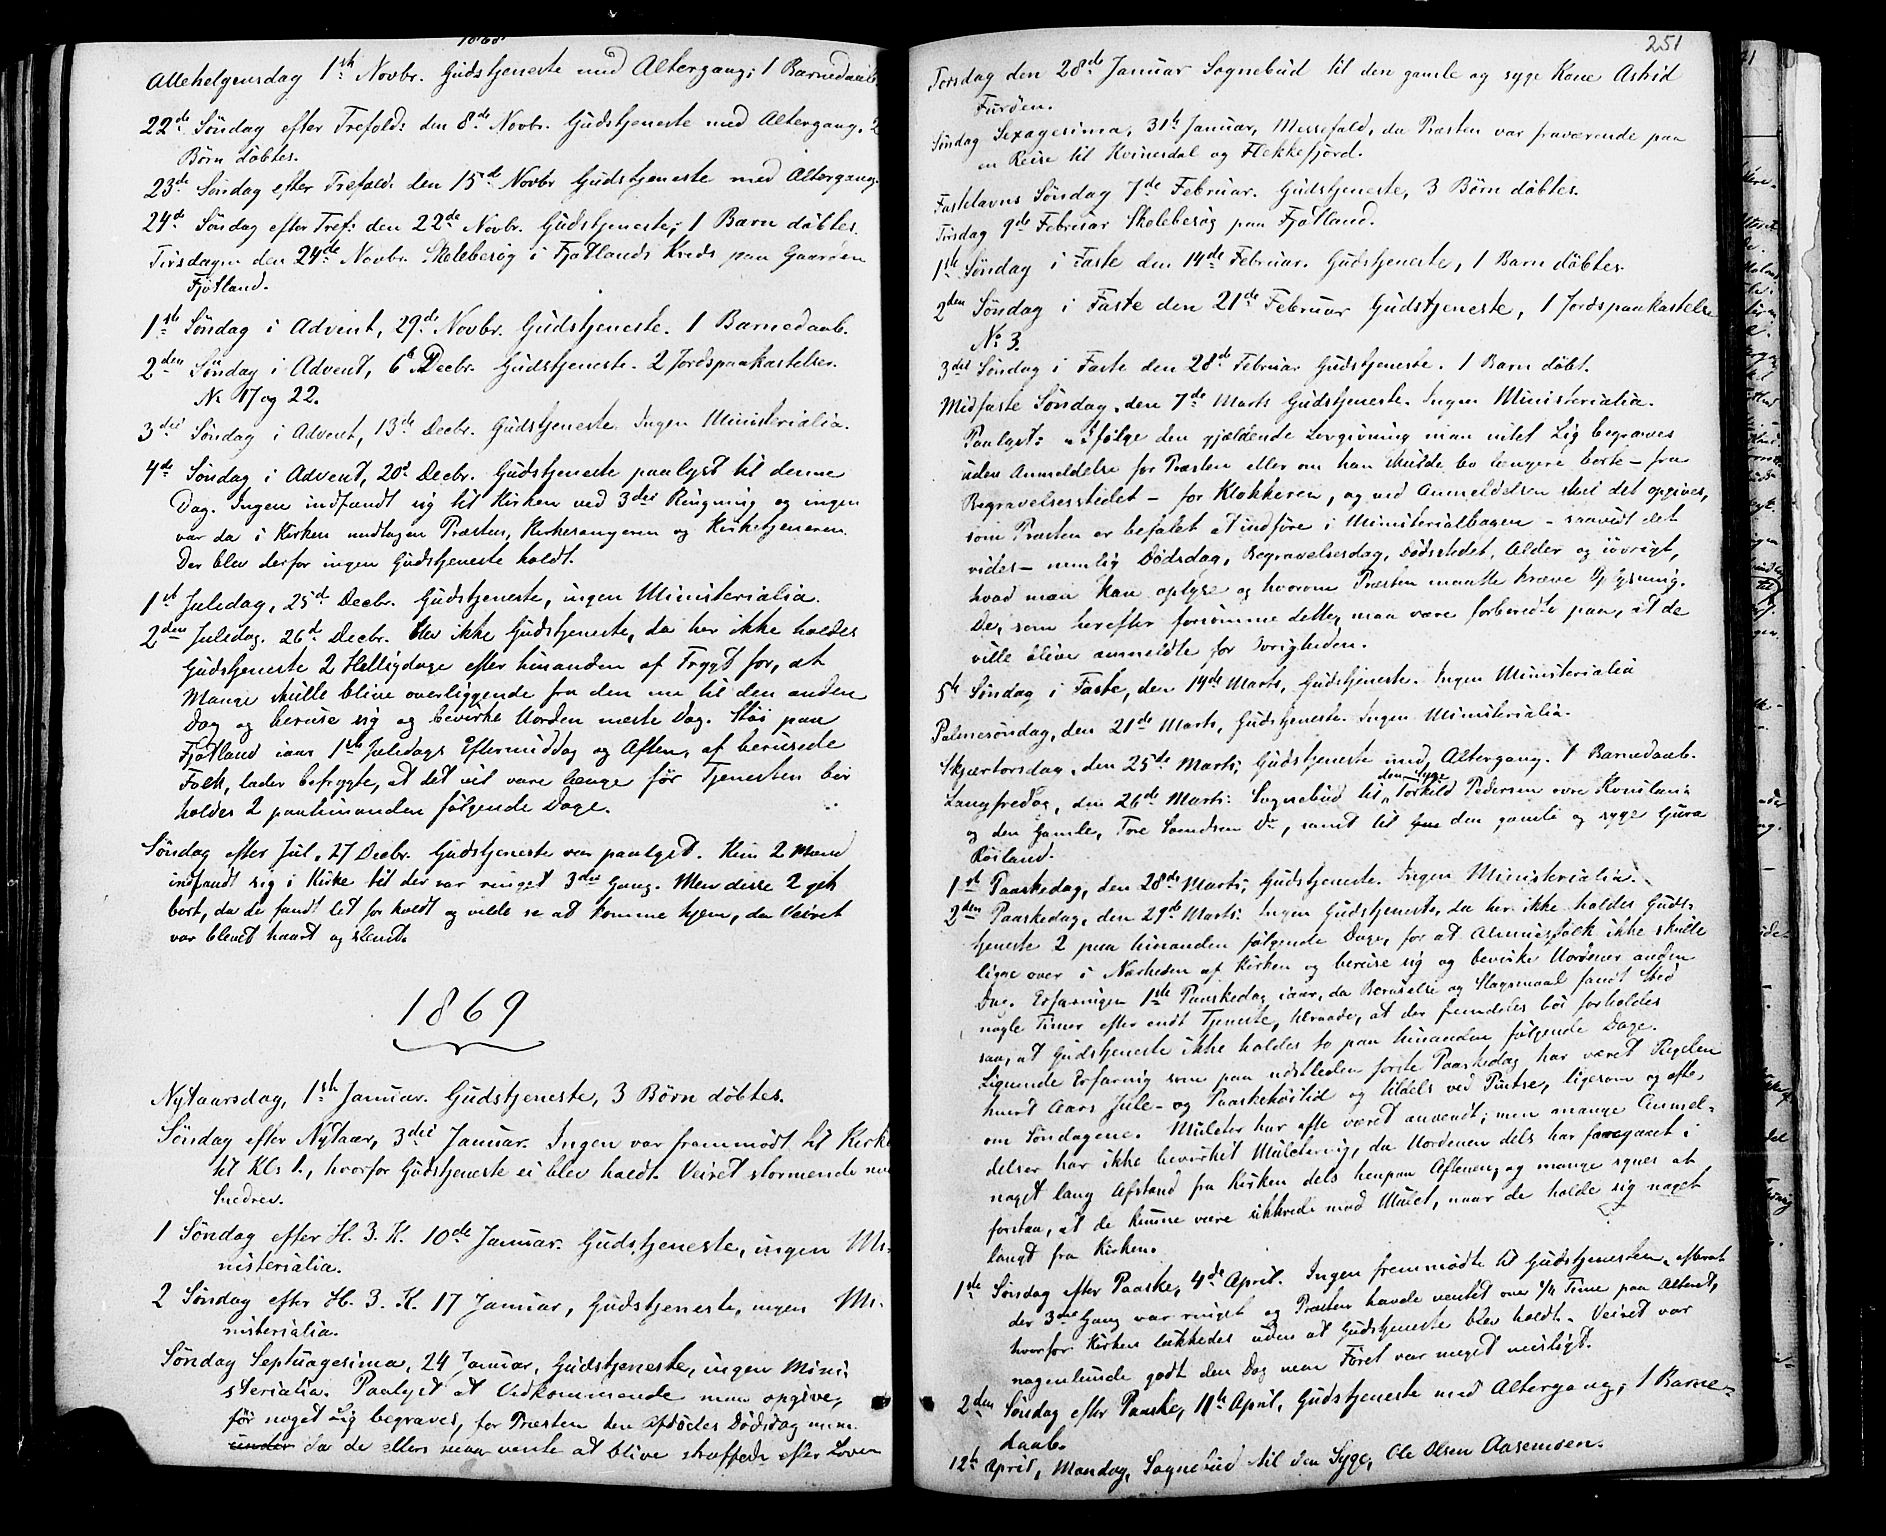 1868
Allehelgensdag 1ste Novbr. Gudstjeneste med Altergang; 1 Barnedaab
22de Søndag efter Trefold: den 8de Novbr. Gudstjeneste med Altergang. 2
Børn døbtes.
23de Søndag efter Trefold. den 15de Novbr Gudstjeneste med Altergang.
24de Søndag efter Tref: den 22de Novbr. Gudstjeneste; 1 Barn døbtes.
Tirsdagen den 24de Novbr. Skolebesøg i Fjotlands Kreds paa Gaarden
Fjotland.
1ste Søndag i Advent, 29de Novbr. Gudstjeneste. 1 Barnedaab.
2den Søndag i Advent, 6te Decbr. Gudstjeneste. 2 Jordspaakastelser.
No 17 og 22.
3die Søndag i Advent, 13de Decbr. Gudstjeneste. Ingen Ministerialia.
4de Søndag i Advent, 20d Decbr. Gudstjeneste paalyst til denne
Dag. Ingen indfandt sig til Kirken ved 3die Ringning og ingen
var da i Kirken undtagen Præsten, Kirkesangeren og Kirketjeneren.
Der blev derfor ingen Gudstjeneste holdt.
1st Juledag, 25d Decbr. Gudstjeneste, ingen Ministerialia.
2den Juledag. 26d Decbr. blev ikke Gudstjeneste, da her ikke holdes
Gudstjeneste 2 Helligdage efter hinanden af Frygt for, at
Mange skulle blive overliggende fra den ene til den anden
Dag og beruse sig og bevirke Uorden næste Dag. Støi paa
Fjotland iaar 1ste Juledags Eftermiddag og Aften, af berusede
Folk, lader befrygte, at det vil vare længe før Tjenesten bør
holdes 2 paahinanden følgende Dage.
Søndag efter Jul, 27 Decbr. Gudstjeneste var paalyst. Kun 2 Mænd
indfandt sig i Kirke til der var ringet 3die Gang. Men disse 2 gik
bort, da de fandt det for koldt og vilde se at komme hjem, da Veiret
var blevet haardt og slemt.
1869
Nytaarsdag, 1ste Januar. Gudstjeneste, 3 Børn døbtes.
Søndag efter Nytaar, 3die Januar. Ingen var fremmødt til Kirke
til Kl: 1., hvorfor Gudstjeneste ei blev holdt. Veiret stormende med
Snedrev.
1 Søndag efter H. 3. K. 10de Januar. Gudstjeneste, ingen Mi-
nisterialia.
2 Søndag efter H. 3. K. 17 Januar, Gudstjeneste, ingen Mi-
nisterialia.
Søndag Septuagesima, 24 Januar, Gudstjeneste, ingen Mini
sterialia. Paalyst at Vedkommende maa opgive,
før noget Lig begraves, for Præsten den afdødes Dødsdag m.m.
da de ellers maa vente at blive straffede efter Loven
251
Torsdag den 28de Januar Sognebud til den gamle og syge Kone Astrid
Furøen.
Søndag Sexagesima, 31te Januar, Messefald, da Præsten var fraværende paa
en Reise til Kvinesdal og Flekkefjord.
Fastelavns Søndag 7de Februar. Gudstjeneste, 3 Børn døbtes.
Tirsdag 9de Februar Skolebesøg paa Fjotland.
1ste Søndag i Faste den 14de Februar. Gudstjeneste, 1 Barn døbtes.
2den Søndag i Faste den 21de Februar Gudstjeneste, 1 Jordspaakastelse
No 3.
3die Søndag i Faste den 28de Februar Gudstjeneste. 1 Barn døbt.
Midfaste Søndag, den 7de Marts Gudstjeneste. Ingen Ministerialia.
Paalyst: "Ifølge den gjældende Lovgivning maa intet Lig begraves
uden Anmeldelse for Præsten eller om han skulde bo længere borte – fra
Begravelsesstedet – for Klokkeren, og ved Anmeldelsen skal det opgives,
som Præsten er befalet at indføre i Ministerialbogen – saavidt det
vides – nemlig Dødsdag, Begravelsesdag, Dødsstedet, Alder og iøvrigt,
hvad man kan oplyse og hvorom Præsten maatte kræve Oplysning.
De, som herefter forsømme dette, maa være forberedte paa, at de
ville blive anmeldte for Øvrigheden.
5te Søndag i Faste, den 14de Marts, Gudstjeneste. Ingen Ministerialia
Palmesøndag, den 21de Marts, Gudstjeneste. Ingen Ministerialia.
Skjærtorsdag, den 25de Marts; Gudstjeneste med Altergang. 1 Barnedaab.
Langfredag, den 26de Marts: Sognebud til den syge Torkild Pedersen øvre Kvinlaug
og den Gamle, Tore Svendsen Do, samt til den gamle og syge Gura
Røiland.
1st Paaskedag, den 28de Marts; Gudstjeneste. Ingen Ministerialia.
2den Paaskedag, den 29de Marts: Ingen Gudstjeneste, da her ikke holdes Guds-
tjeneste 2 paa hinanden følgende Dage, for at Almuesfolk ikke skulle
ligge over i Nærheden af Kirken og beruse sig og bevirke Uordener anden
Dag. Erfaringen 1ste Paaskedag iaar, da Beruselse og Slagsmaal fandt Sted
nogle Timer efter endt Tjeneste, tilraade, at der fremdeles bør forholdes
saa, at Gudstjeneste ikke holdes to paa hinanden følgende Dage.
Lignende Erfaring som paa nidstleden første Paaskedag har været Regelen
hvert Aars Jule- og Paaskehøitid og tildels ved Pintse, ligesom og ofte
om Søndagene. Mulcter har ofte været anvendt; men mange Anmel-
delser har ikke bevirket Mulctering, da Uordenen dels har foregaaet i
noget lang Afstand fra Kirken dels henpaa Aftenen, og mange synes at
forstaa, at de kunne være sikkrede mod Mulct, naar de holde sig noget
langt fra Kirken.
1ste Søndag efter Paaske, 4de April. Ingen fremmødte til Gudstjenesten, efterat
der 3die Gang var ringet og Præsten havde ventet over 1/4 Time paa Alteret,
hvorfor Kirken lukkedes uden at Gudstjeneste blev holdt. Veiret var
nogenlunde godt den Dag men Føret var meget usligt.
2den Søndag efter Paaske, 11te April, Gudstjeneste med Altergang; 1 Barne-
daab.
12te April, Mandag, Sognebud til den Syge, Ole Olsen Aasemoen.